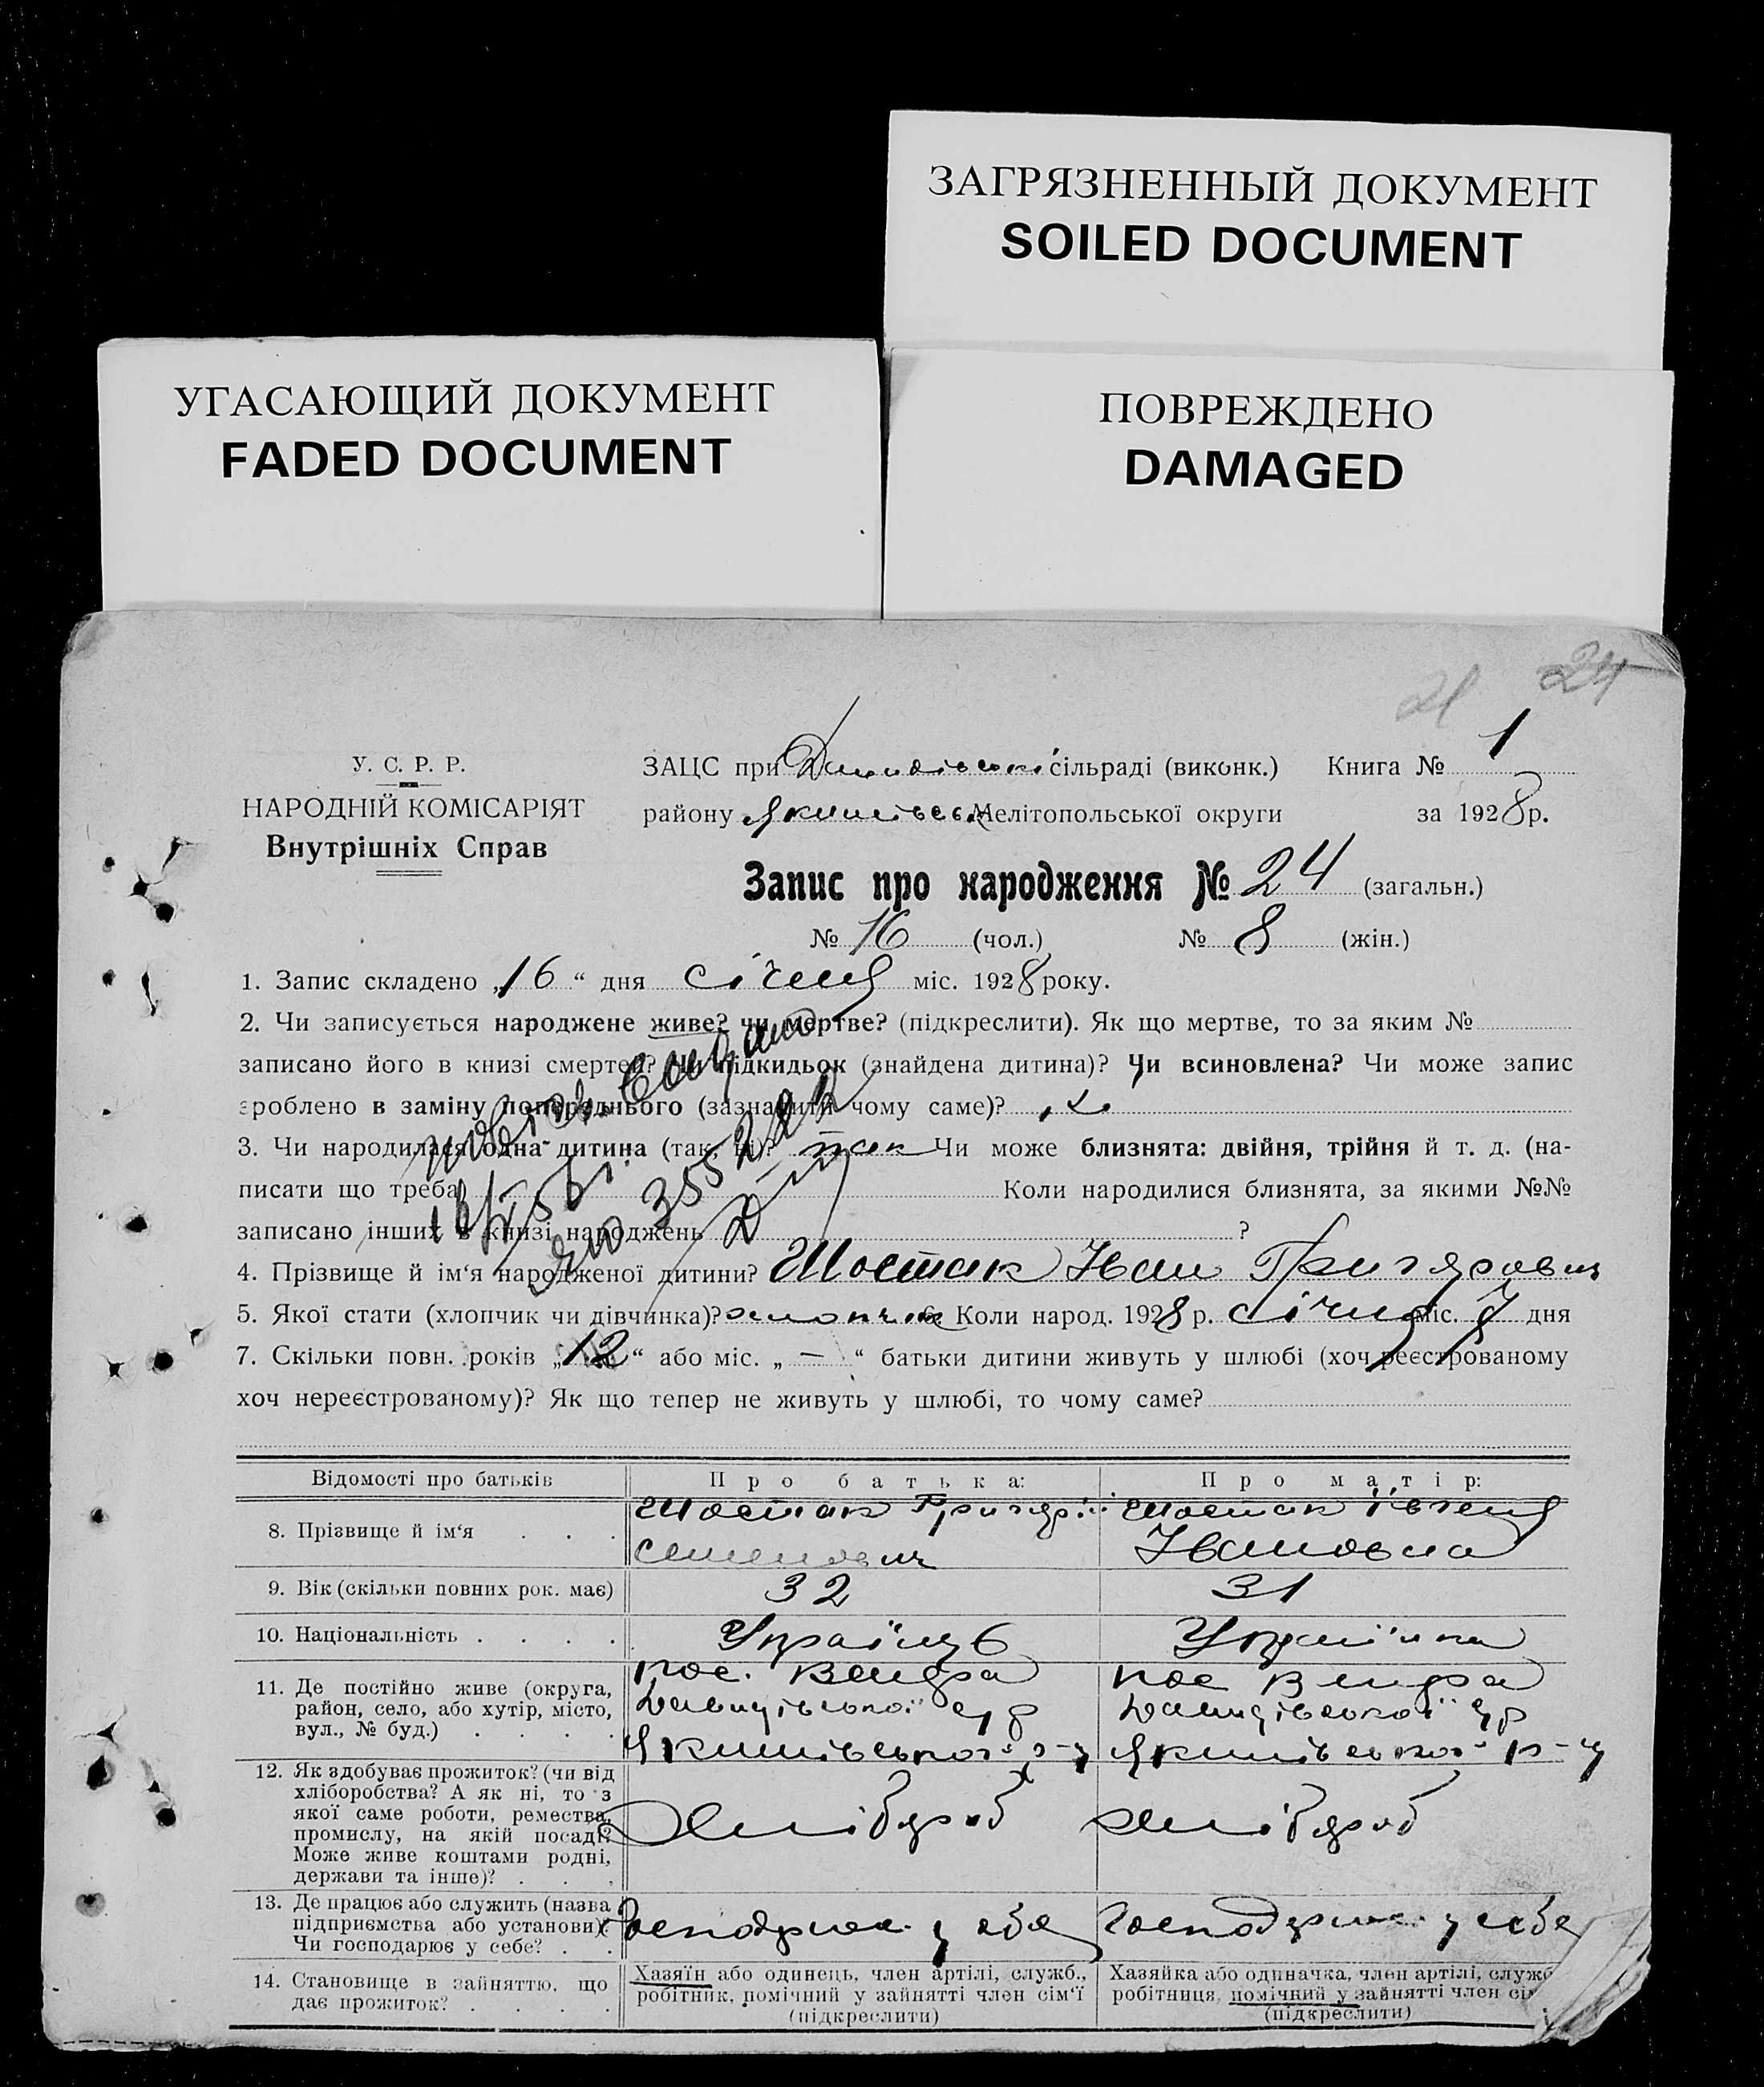 ЗАГРЯЗНЕННЫЙ ДОКУМЕНТ
SOILED DOCUMENT
УГАСАЮЩИЙ ДОКУМЕНТ
FADED DOCUMENT
ПОВРЕЖДЕНО
DAMAGED
24
У. С. Р. Р.
НАРОДНІЙ КОМІСАРІЯТ
Внутрішніх Справ
ЗАЦС при сільраді (виконк.) Книга № 1
району Якимівськ Мелітопольської округи за 1928 р.
Запис про народження № 24 (загальн.)
№ 16 (чол.) № 8 (жін.)
1. Запис складено „16“ дня січня міс. 1928 року.
2. Чи записується народжене живе? чи мертве? (підкреслити). Як що мертве, то за яким №
записано його в книзі смертей? Чи підкидьок (знайдена дитина)? Чи всиновлена? Чи може запис
зроблено в заміну попереднього (зазначити чому саме)?
3. Чи народилася одна дитина (так, ні)? так Чи може близнята: двійня, трійня й т. д. (на-
писати що треба) Коли народилися близнята, за якими №№
записано інших в книзі народжень ?
4. Прізвище й ім‘я народженої дитини? Шостак Іван Григорович
5. Якої стати (хлопчик чи дівчинка)? хлопчик 6. Коли народ. 1928 р. січня міс. 7 дня
7. Скільки повн. років „12“ або міс. „ — “ батьки дитини живуть у шлюбі (хоч реєстрованому
хоч нереєстрованому)? Як що тепер не живуть у шлюбі, то чому саме?
Відомості про батьків Про батька: Про матір:
8. Прізвище й ім‘я . . . Шостак Григорій Семенович Шостак Івановна
9. Вік (скільки повних рок. має) 32 31
10. Національність . . . . Українець Українка
11. Де постійно живе (округа,
район, село, або хутір, місто,
вул., № буд.) . . . .
пос. Вендра пос Вендра
Давидівської с/р Давидівської с/р
Якимівського р-у Якимівського р-у
12. Як здобуває прожиток? (чи від
хліборобства? А як ні, то з
якої саме роботи, ремества,
промислу, на якій посаді?
Може живе коштами родні,
держави та інше)? . . .
Хлібороб хлібороб
13. Де працює або служить (назва
підприємства або установи)?
Чи господарює у себе? . .
Господарює у себе Господарює у себе
14. Становище в зайняттю, що
дає прожиток? . . . .
Хазяїн або одинець, член артілі, служб.,
робітник, помічний у зайнятті член сім‘ї
(підкреслити)
Хазяйка або одиначка, член артілі, служб
робітниця, помічний у зайнятті член сім
(підкреслити)